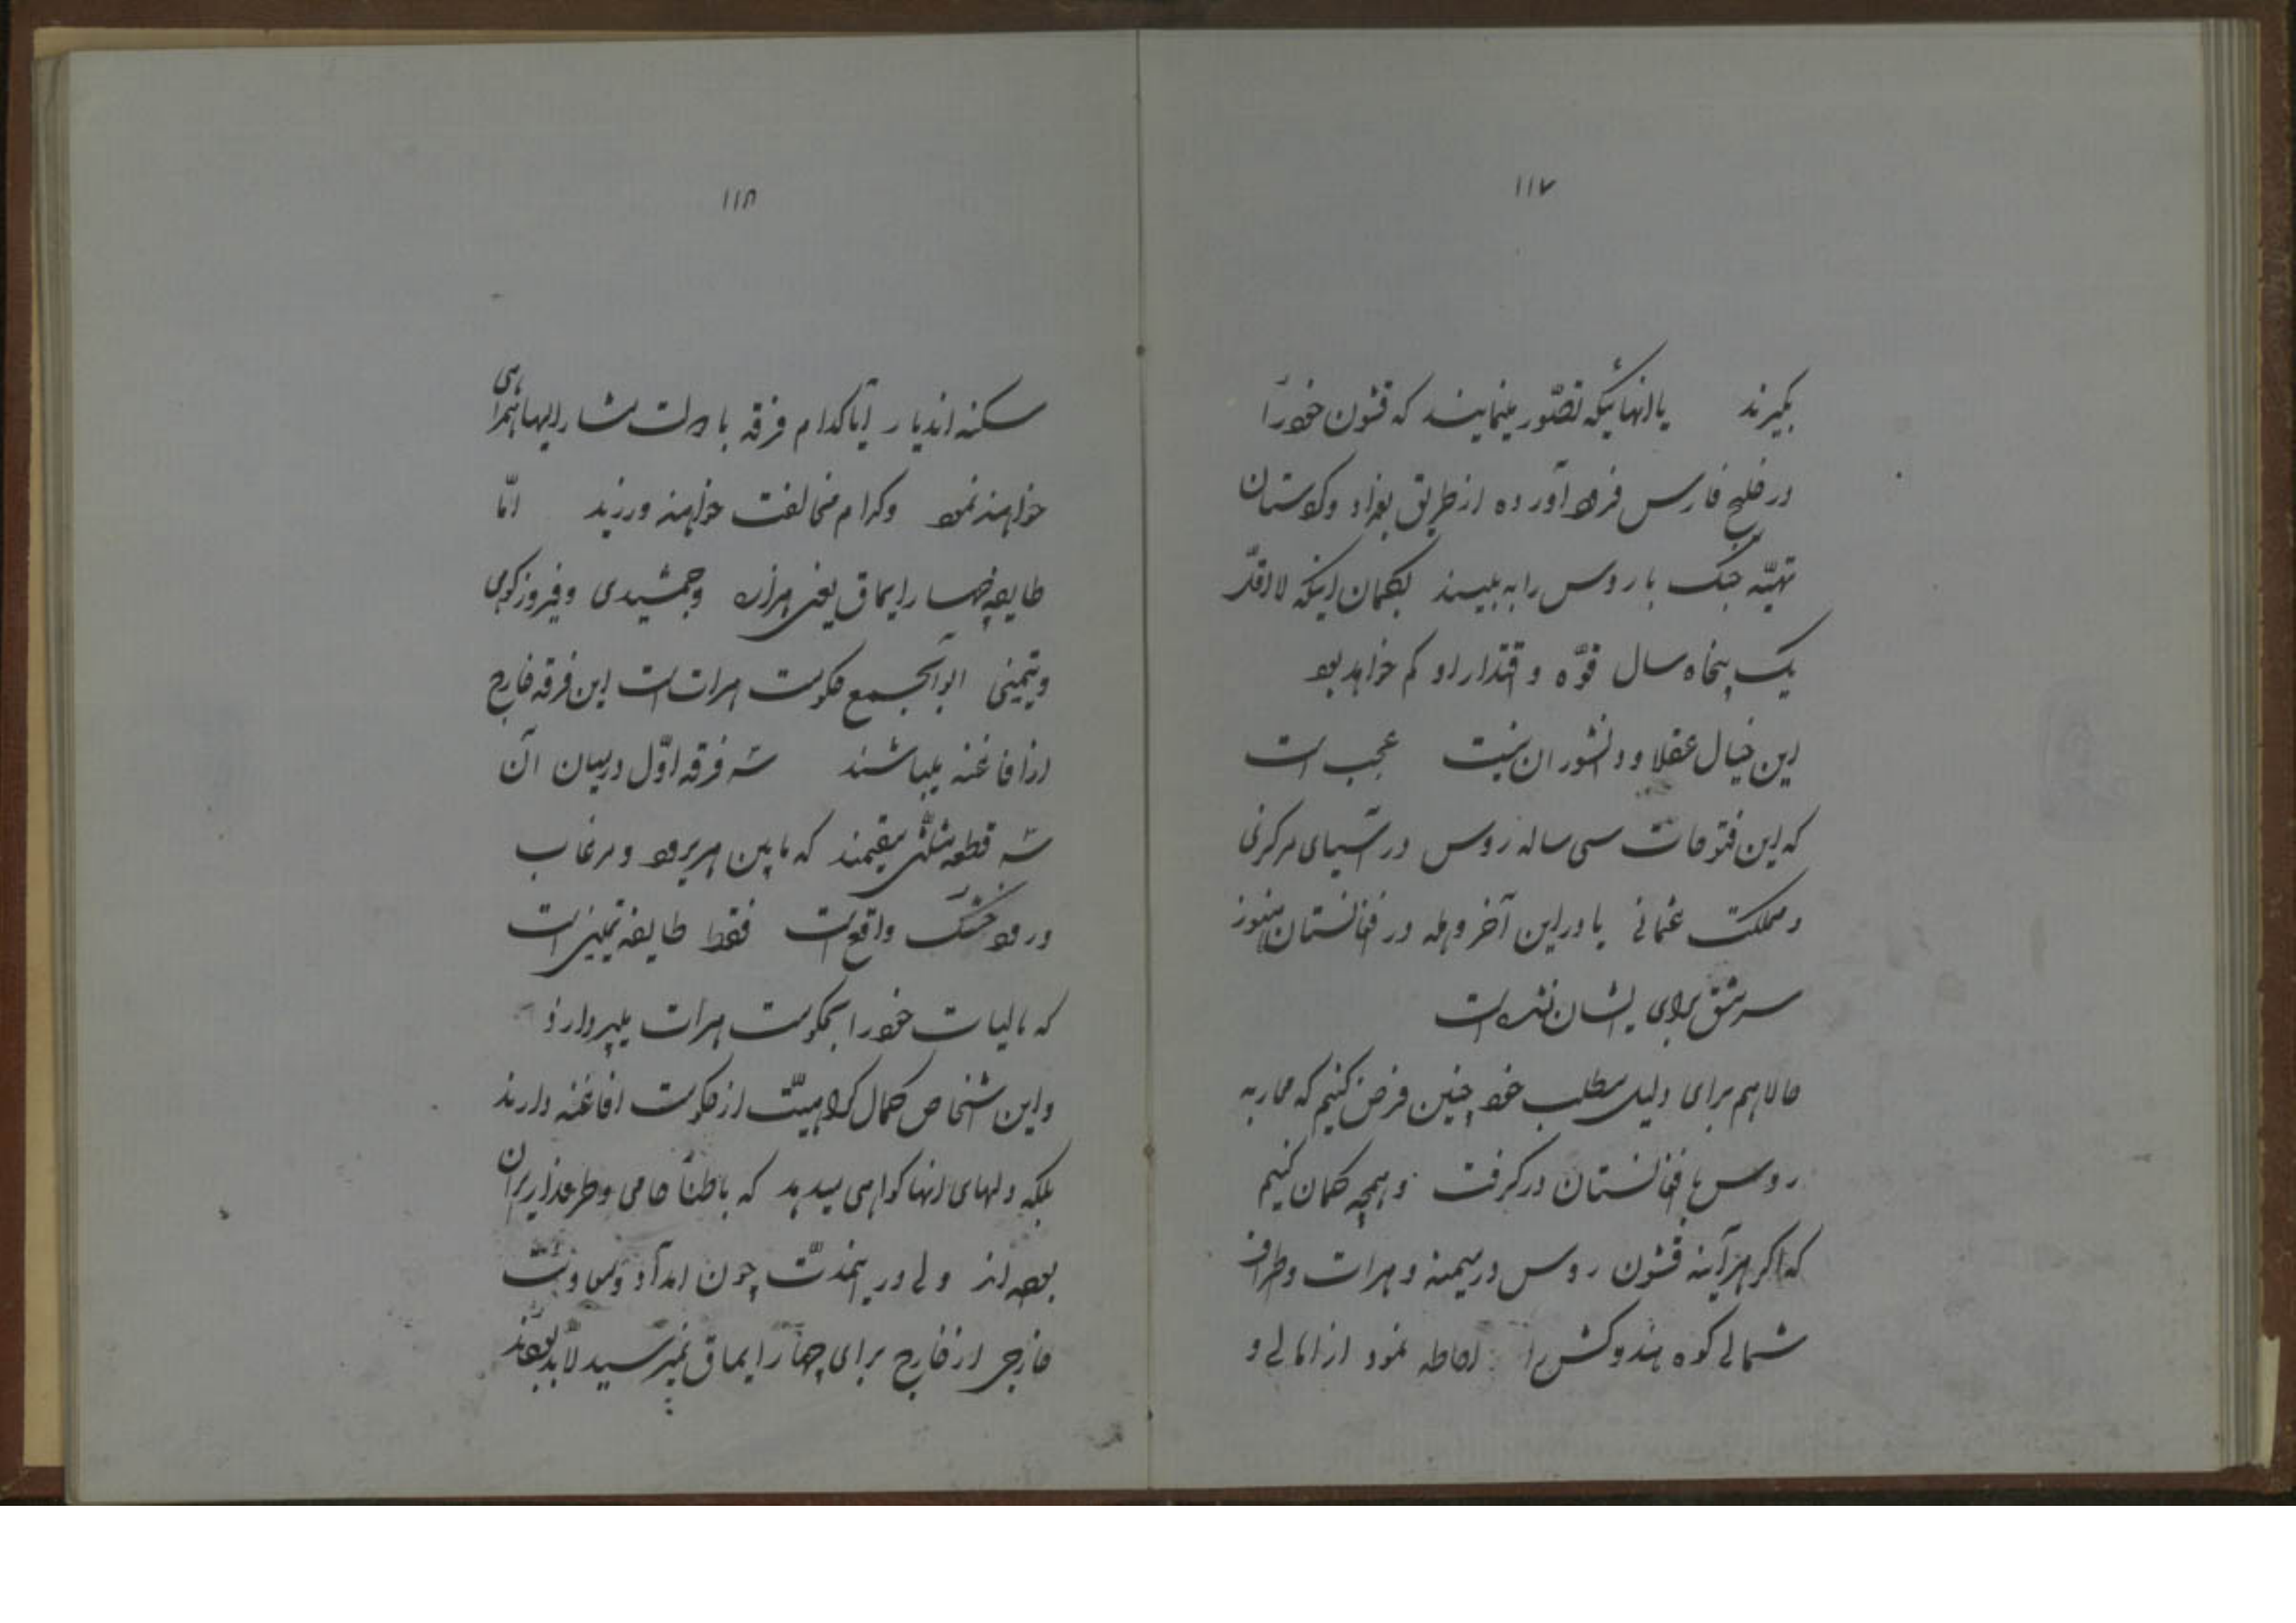 ۱۱۷
بگیرند یا آنهائیکه تصّور مینمایند که قشون خود را
در خلیج فارس فرود آورده از طریق بغداد و کردستان
تهیّه جنگ با روس را به بینند بگمان اینکه لااقلّ
یک پنجاه سال قوّه و اقتدار او کم خواهد بود
این خیال عقلا و دانشوران نیست عجب است
که این فتوحات سی ساله روس در آسیای مرکزی
و مملکت عثمانی یا در این آخر وهله در افغانستان هنوز
سرمشق برای ایشان نشده است
حالا هم برای دلیل مطلب خود چنین فرض کنیم که محاربه
روس با افغانستان درگرفت و همچه گمان کنیم
که اگر هرآینه قشون روس در میمنه و هرات و اطراف
شمالی کوه هندوکش را احاطه نمود از اهالی و
۱۱۸
سکنه اندیار آیا کدام فرقه با دولت مشارالیها همراهی
خواهند نمود و کدام مخالفت خواهند ورزید امّا
طایفه چهار ایماق یعنی هزاره و جمشیدی و فیروزکوهی
و تیمنی ابوابجمع حکومت هرات است این فرقه خارج
از افاغنه میباشند سه فرقه اوّل در میان آن
سه قطعه مثلثی مقیمند که مابین هریرود و مرغاب
و رود خشک واقع است فقط طایفه تیمنی است
که مالیات خود را بحکومت هرات میپردازد
و این اشخاص کمال کراهیّت از حکومت افاغنه دارند
بلکه دلهای آنها گواهی میدهد که باطناً حامی و طرفدار ایران
بوده اند ولی در اینمدّت چون امداد و معاونت
خارجی از خارج برای چهار ایماق نمیرسید لابد بودند